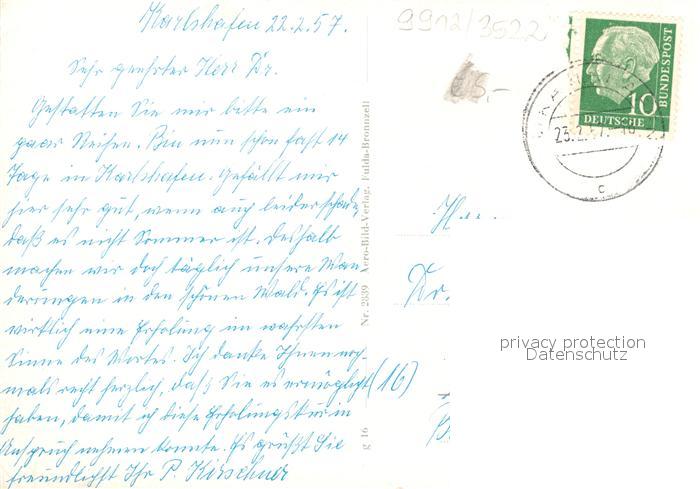 Karlshafen 22.2.57.
Sehr geehrter Herr Dr.
Gestatten Sie mir bitte ein
paar Zeilen. Bin nun schon fast 14
Tage in Karlshafen. Gefällt mir
hier sehr gut, wenn auch leider schade,
daß es nicht Sommer ist. Deshalb
machen wir doch täglich unsere Wan-
derungen in den schönen Wald. Es ist
wirklich eine Erholung im wahrsten
Sinne des Wortes. Ich danke Ihnen noch-
mals recht herzlich, daß Sie es ermöglicht
haben, damit ich diese Erholungskur in
Anspruch nehmen konnte. Es grüßt Sie
freundlichst Ihr P. Kirschner
g 16
Nr. 2839 Aero-Bild-Verlag, Fulda-Bronnzell
9912/3522
DEUTSCHE
BUNDESPOST
10
23.2.57
c
Dr.
(16)
privacy protection
Datenschutz